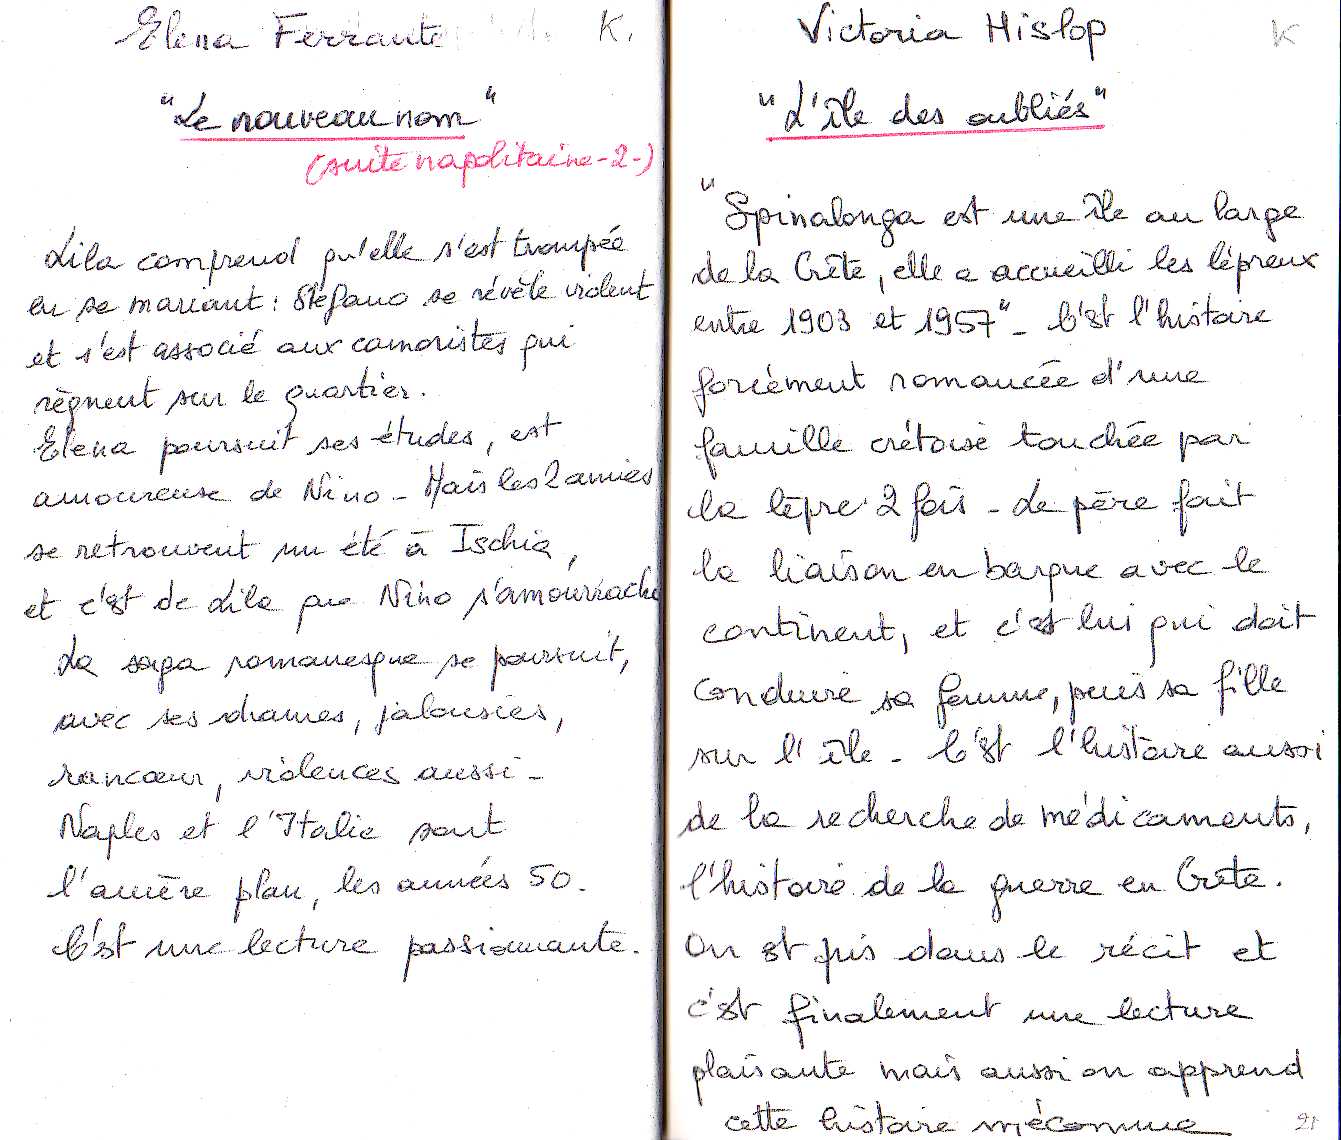 Elena Ferrante K.
"Le nouveau nom"
(suite napolitaine -2-)
Lila comprend qu'elle s'est trompée
en se mariant : Stéfano se révèle violent
et s'est associé aux camoristes qui
règnent sur le quartier.
Elena poursuit ses études, est
amoureuse de Nino - Mais les 2 amies
se retrouvent un été à Ischia,
et c'est de Lila que Nino s'amourrache
La saga romanesque se poursuit,
avec ses drames, jalousies,
rancœur, violences aussi -
Naples et l'Italie sont
l'arrière plan, les années 50.
C'est une lecture passionnante.
Victoria Hislop K
"L'île des oubliés"
"Spinalonga est une île au large
de la Crête, elle a accueilli les lépreux
entre 1903 et 1957" - C'est l'histoire
forcément romancée d'une
famille crétoise touchée par
la lèpre 2 fois - Le père fait
la liaison en barque avec le
continent, et c'est lui qui doit
conduire sa femme, puis sa fille
sur l'île - C'est l'histoire aussi
de la recherche de médicaments,
l'histoire de la guerre en Crète.
On est pris dans le récit et
c'est finalement une lecture
plaisante mais aussi on apprend
cette histoire méconnue
21